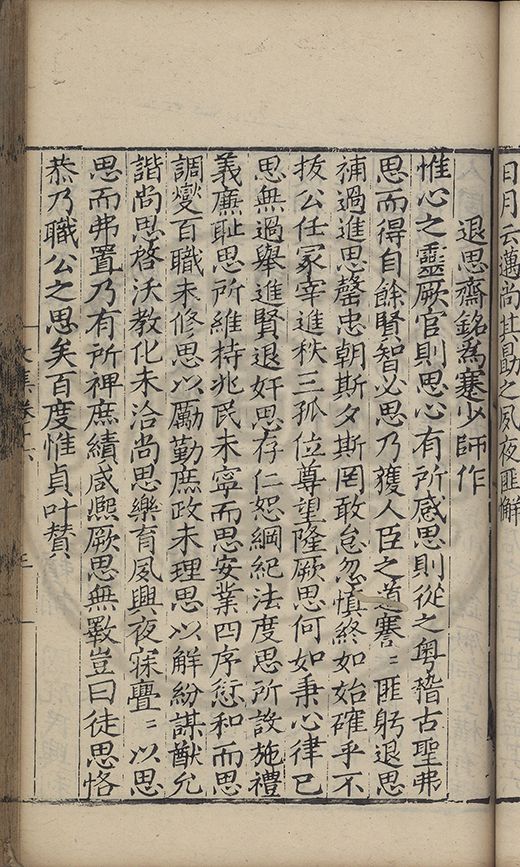 日月云邁尚其勗之夙夜匪懈
退思齋銘爲蹇少師作
惟心之靈厥官則思心有所感思則從之粤稽古聖弗
思而得自餘賢智必思乃獲人臣之道謇〻匪躬退思
補過進思罄忠朝斯夕斯罔敢怠忽慎終如始確乎不
拔公任冢宰進秩三孤位尊望隆厥思何如秉心律己
思無過舉進賢退奸思存仁恕綱紀法度思所設施禮
義廉恥思所維持兆民未寧而思安業四序愆和而思
調爕百職未修思以勵勤庶政未理思以解紛謀猷允
諧尚思啓沃教化未洽尚思樂育夙興夜寐亹〻以思
思而弗置乃有所裨庶績咸熈厥思無斁豈曰徒思恪
恭乃職公之思矣百度惟貞叶賛
文集卷十六